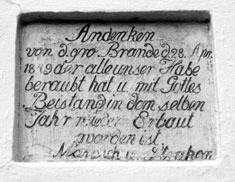 Andenken
von d. gro. Brande d 28. Apr.
1849 der alle unser Habe
beraubt hat u. mit Gottes
Beistand in dem selben
Jahr wieder Erbaut
worden ist